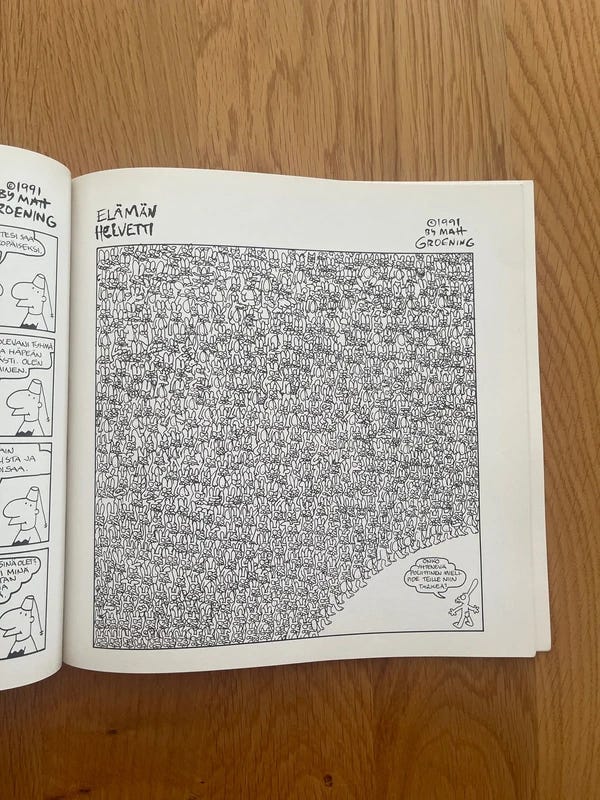 ©1991
BY MATT
GROENING
TESI SAA
OPÄISEKSI.
OLEVANI TYHMÄ
A HÄPEÄN
ÄSTI. OLEN
MINEN.
AIN
ISTA JA
OLSAA.
SINÄ OLET?
I MINÄ
TAN
ELÄMÄN
HELVETTI
©1991
BY MATT
GROENING
ONKO
YHTENEVÄ
POLIITTINEN MIELI-
PIDE TEILLE NIIN
TÄRKEÄ?